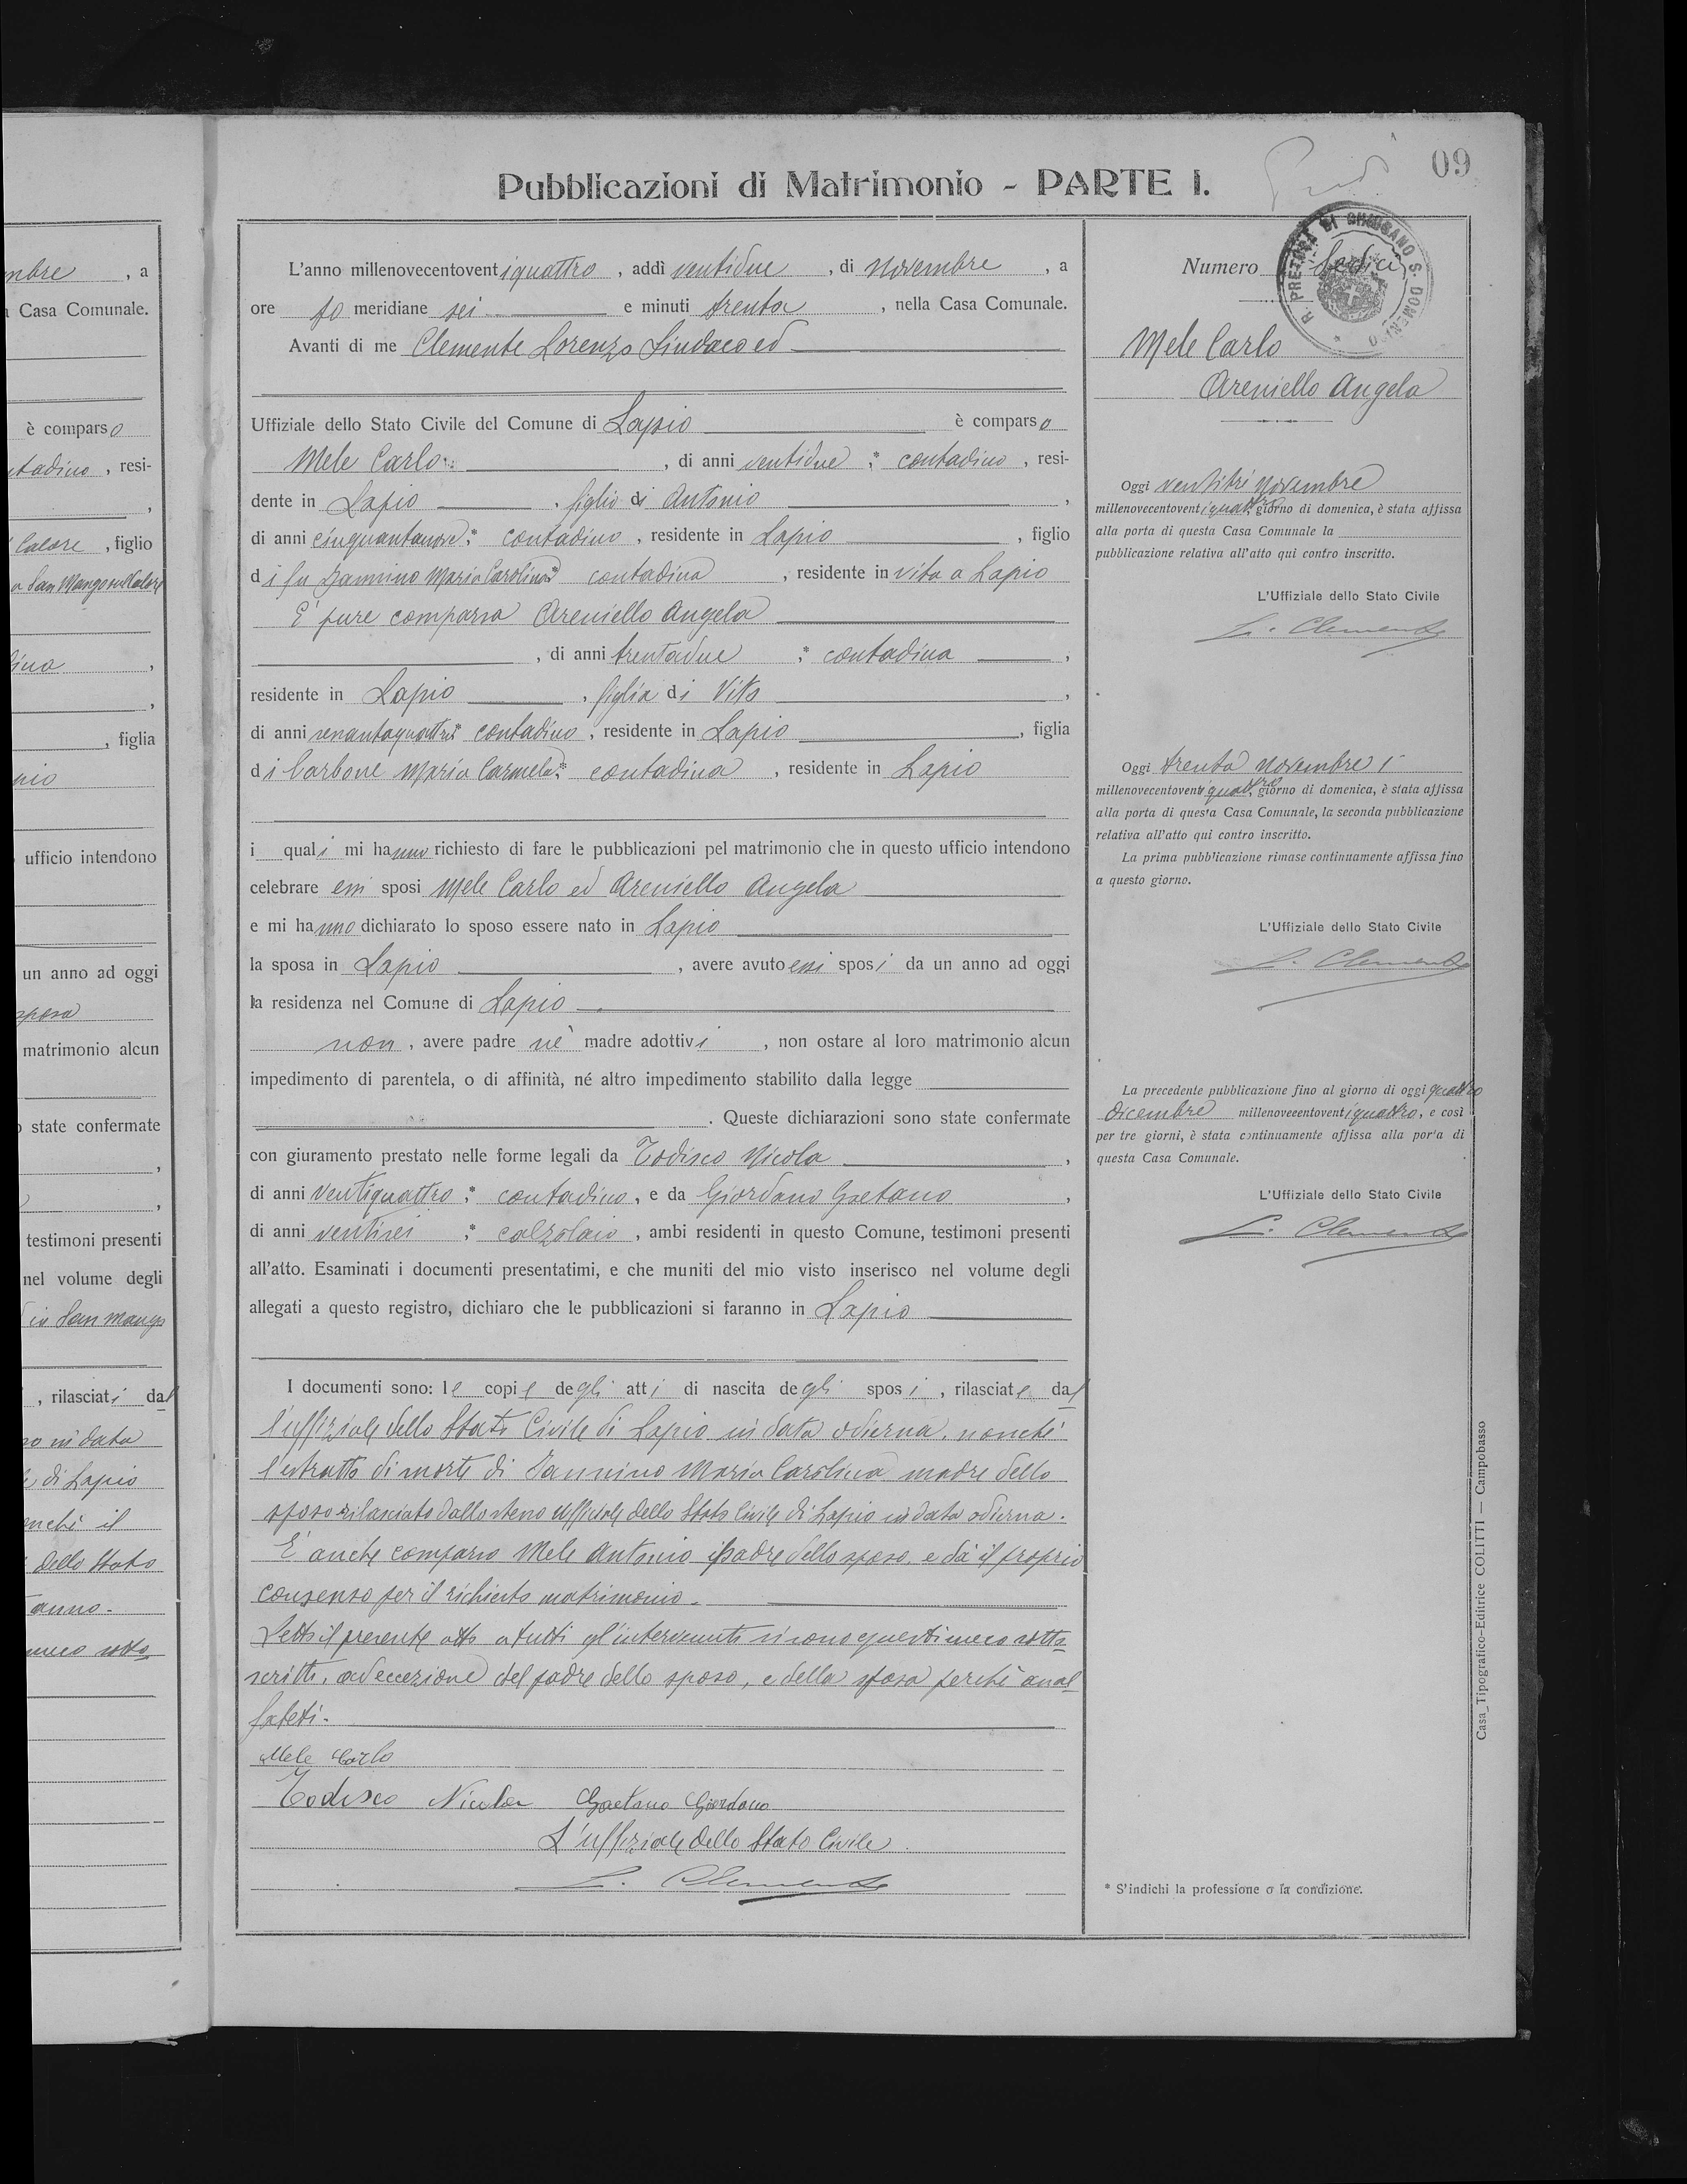 09
Pubblicazioni di Matrimonio - PARTE I.
L'anno millenovecentoventiquattro, addì ventidue, di Novembre, a
ore po meridiane sei e minuti trenta, nella Casa Comunale.
Avanti di me Clemente Lorenzo Sindaco ed
Uffiziale dello Stato Civile del Comune di Lapio è comparso
Mele Carlo, di anni ventidue,* contadino, resi-
dente in Lapio, figlio di Antonio,
di anni cinquantanove,* contadino, residente in Lapio, figlio
di fu Iannino Maria Carolina,* contadina, residente in vita a Lapio
E' pure comparsa Areniello Angela
, di anni trentadue,* contadina,
residente in Lapio, figlia di Vito,
di anni sessantaquattro,* contadino, residente in Lapio, figlia
di Carbone Maria Carmela,* contadina, residente in Lapio
i quali mi hanno richiesto di fare le pubblicazioni pel matrimonio che in questo ufficio intendono
celebrare essi sposi Mele Carlo ed Areniello Angela
e mi hanno dichiarato lo sposo essere nato in Lapio
la sposa in Lapio, avere avuto essi sposi da un anno ad oggi
la residenza nel Comune di Lapio
non, avere padre nè madre adottivi, non ostare al loro matrimonio alcun
impedimento di parentela, o di affinità, né altro impedimento stabilito dalla legge
. Queste dichiarazioni sono state confermate
con giuramento prestato nelle forme legali da Todisco Nicola,
di anni ventiquattro,* contadino, e da Giordano Gaetano,
di anni ventisei,* calzolaio, ambi residenti in questo Comune, testimoni presenti
all'atto. Esaminati i documenti presentatimi, e che muniti del mio visto inserisco nel volume degli
allegati a questo registro, dichiaro che le pubblicazioni si faranno in Lapio
I documenti sono: le copie degli atti di nascita degli sposi, rilasciate dal
l'uffiziale dello Stato Civile di Lapio in data odierna, nonchè
l'estratto di morte di Iannino Maria Carolina madre dello
sposo rilasciato dallo stesso Uffiziale dello Stato Civile di Lapio in data odierna.
E' anche comparso Mele Antonio padre dello sposo e dà il proprio
consenso per il richiesto matrimonio.
Letto il presente atto a tutti gl'intervenuti si sono questi meco sotto
scritti, ad eccezione del padre dello sposo, e della sposa perchè anal
fabeti.
Mele Carlo
Todisco Nicola Gaetano Giordano
L'uffiziale dello Stato Civile
L. Clemente
Numero Sedici
R. PRETURA DI CHIUSANO S. DOMENICO
Mele Carlo
Areniello Angela
Oggi ventitrè Novembre
millenovecentoventiquattro, giorno di domenica, è stata affissa
alla porta di questa Casa Comunale la
pubblicazione relativa all'atto qui contro inscritto.
L'Uffiziale dello Stato Civile
L. Clemente
Oggi trenta Novembre
millenovecentoventiquattro, giorno di domenica, è stata affissa
alla porta di questa Casa Comunale, la seconda pubblicazione
relativa all'atto qui contro inscritto.
La prima pubblicazione rimase continuamente affissa fino
a questo giorno.
L'Uffiziale dello Stato Civile
L. Clemente
La precedente pubblicazione fino al giorno di oggi quattro
Dicembre millenovecentoventiquattro, e così
per tre giorni, è stata continuamente affissa alla porta di
questa Casa Comunale.
L'Uffiziale dello Stato Civile
L. Clemente
* S'indichi la professione o la condizione.
Casa Tipografico-Editrice COLITTI — Campobasso
mbre, a
Casa Comunale.
è comparso
tadino, resi-
Calore, figlio
a San Mango sul Calore
, figlia
ufficio intendono
un anno ad oggi
sposa
matrimonio alcun
state confermate
testimoni presenti
nel volume degli
in San Mango
, rilasciati dal
in data
di Lapio
nchè il
dello Stato
anno.
meco sotto